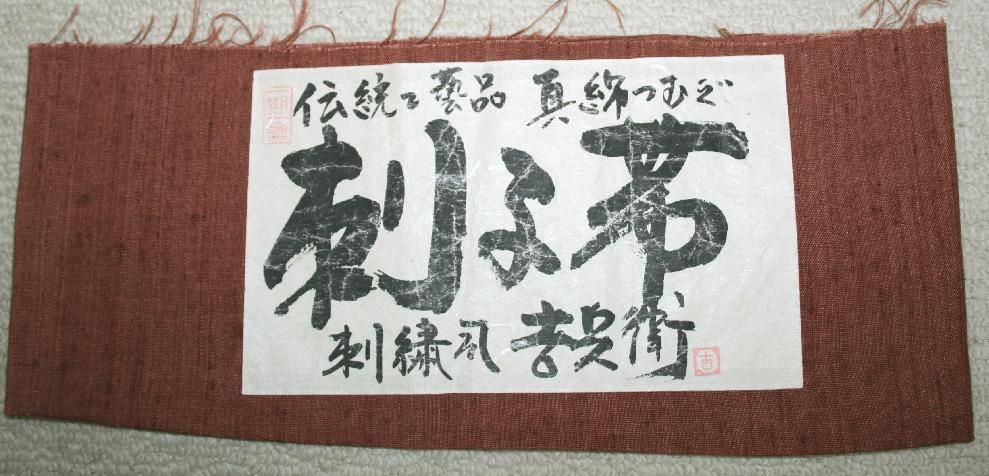 伝統工藝品 真綿つむぎ
刺子帯
刺繍処 吉兵衛
吉